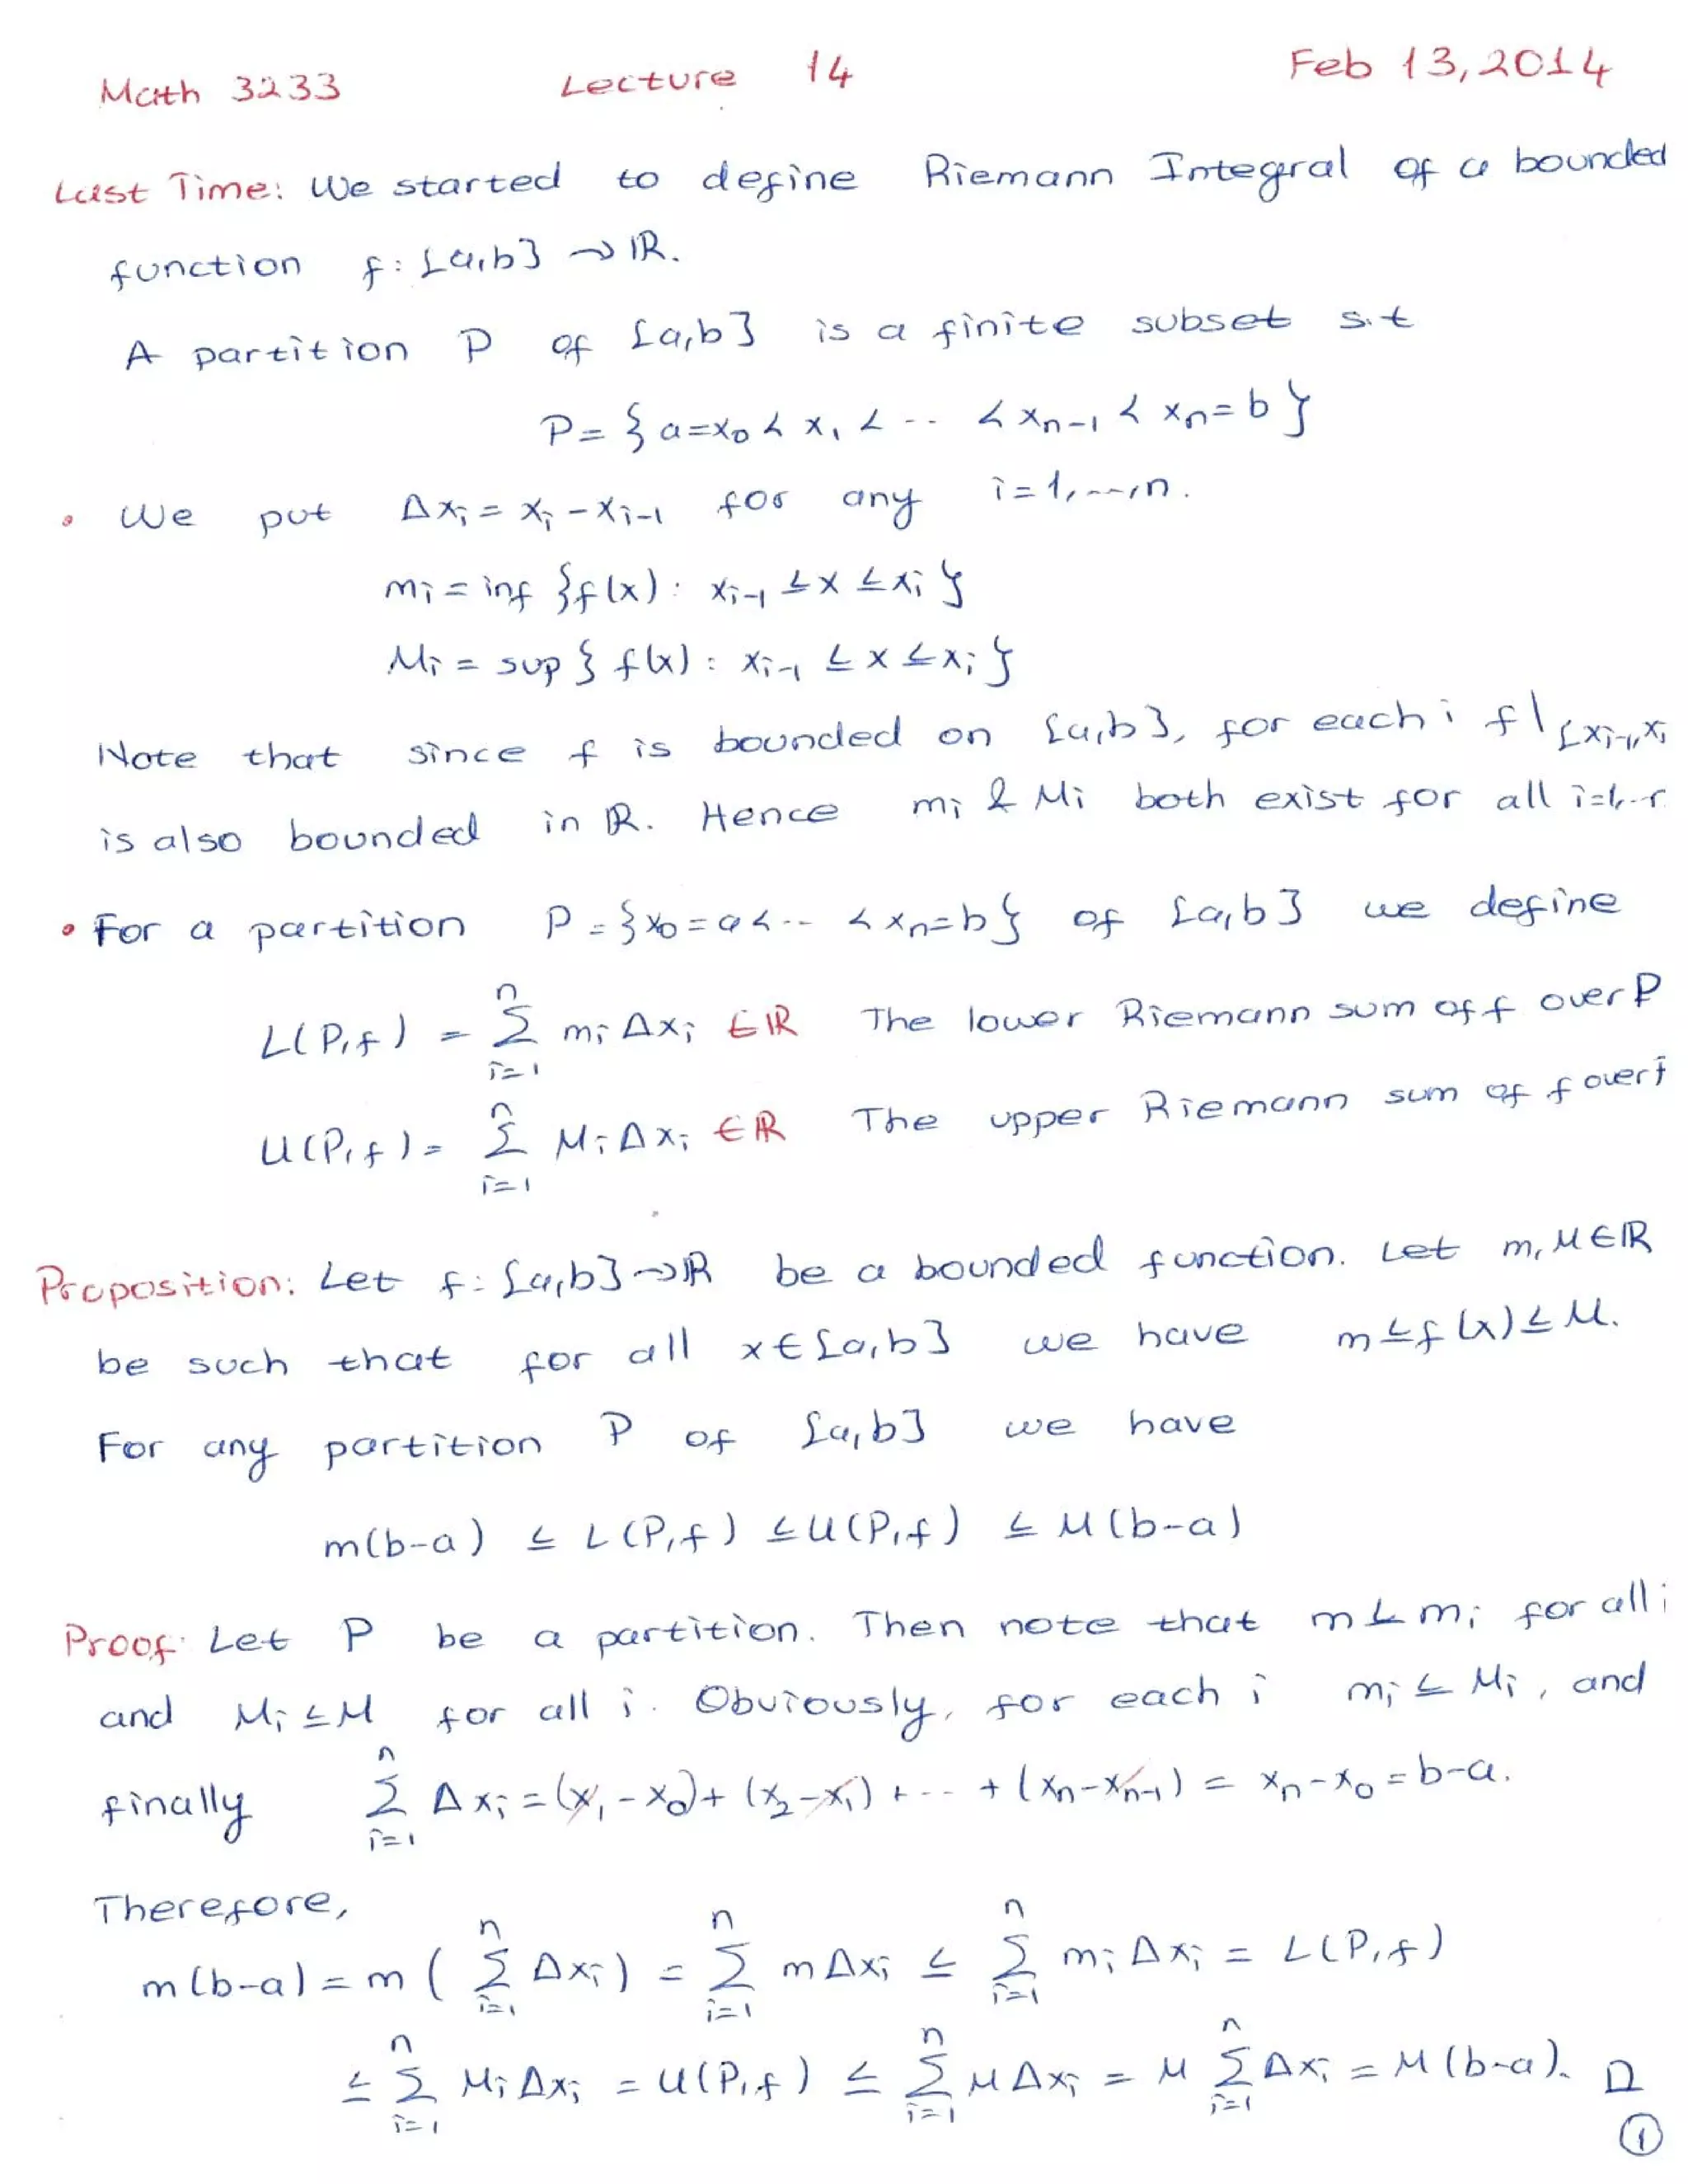 Math 3233 Lecture 14 Feb 13, 2014
Last Time: We started to define Riemann Integral of a bounded
function f: [a,b] → ℝ.
A partition P of [a,b] is a finite subset s.t
P = { a=x₀ < x₁ < -- < xₙ₋₁ < xₙ = b }
• We put Δxᵢ = xᵢ - xᵢ₋₁ for any i = 1, ---, n.
mᵢ = inf {f(x) : xᵢ₋₁ ≤ x ≤ xᵢ }
Mᵢ = sup { f(x) : xᵢ₋₁ ≤ x ≤ xᵢ }
Note that since f is bounded on [a,b], for each i f|[xᵢ₋₁, xᵢ
is also bounded in ℝ. Hence mᵢ & Mᵢ both exist for all i=1,--
• For a partition P = {x₀ = a < -- < xₙ = b} of [a,b] we define
L(P,f) = Σᵢ₌₁ⁿ mᵢ Δxᵢ ∈ ℝ The lower Riemann sum of f over P
U(P,f) = Σᵢ₌₁ⁿ Mᵢ Δxᵢ ∈ ℝ The upper Riemann sum of f over
Proposition: Let f: [a,b] → ℝ be a bounded function. Let m, M ∈ ℝ
be such that for all x ∈ [a,b] we have m ≤ f(x) ≤ M.
For any partition P of [a,b] we have
m(b-a) ≤ L(P,f) ≤ U(P,f) ≤ M(b-a)
Proof: Let P be a partition. Then note that m ≤ mᵢ for all i
and Mᵢ ≤ M for all i. Obviously, for each i mᵢ ≤ Mᵢ, and
finally Σᵢ₌₁ⁿ Δxᵢ = (x₁ - x₀) + (x₂ - x₁) + --- + (xₙ - xₙ₋₁) = xₙ - x₀ = b-a.
Therefore,
m(b-a) = m ( Σᵢ₌₁ⁿ Δxᵢ ) = Σᵢ₌₁ⁿ m Δxᵢ ≤ Σᵢ₌₁ⁿ mᵢ Δxᵢ = L(P,f)
≤ Σᵢ₌₁ⁿ Mᵢ Δxᵢ = U(P,f) ≤ Σᵢ₌₁ⁿ M Δxᵢ = M Σᵢ₌₁ⁿ Δxᵢ = M(b-a). □
①